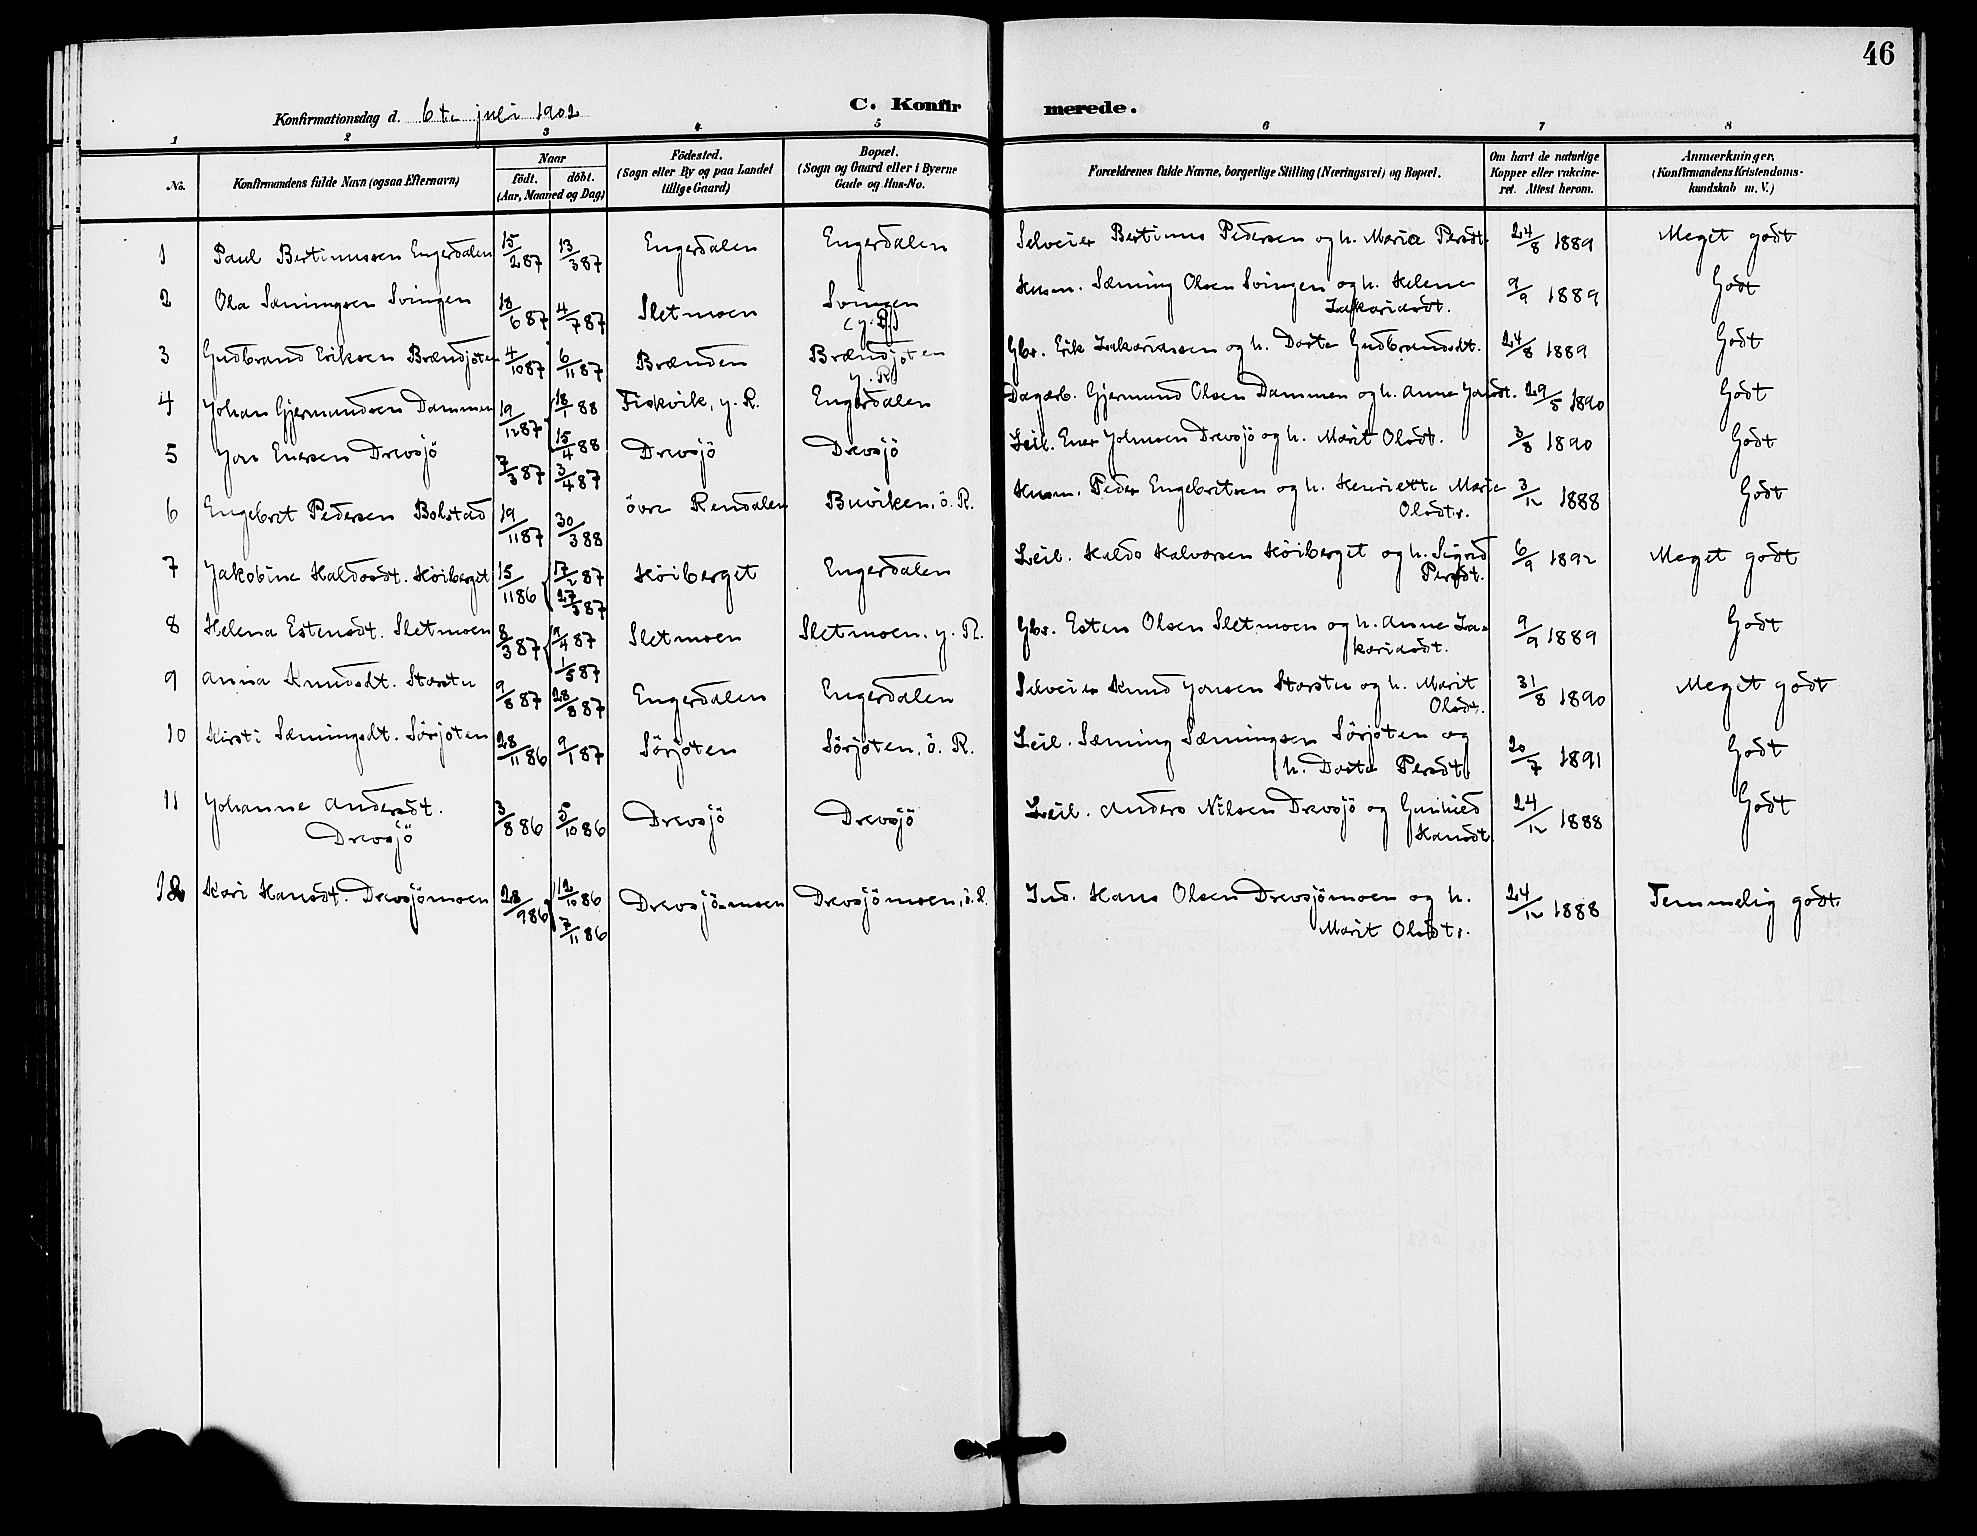 46
C. Konfirmerede.
Konfirmationsdag d. 6te juli 1902
1 2 3 4 5 6 7 8
No. Konfirmandens fulde Navn (ogsaa Efternavn) Naar födt. döbt. (Aar, Maaned og Dag) Födested. (Sogn eller By og paa Landet tillige Gaard) Bopæl. (Sogn og Gaard eller i Byerne Gade og Hus-No. Forældrenes fulde Navne, borgerlige Stilling (Næringsvei) og Bopæl. Om havt de naturlige Kopper eller vakcineret. Attest herom. Anmærkninger. (Konfirmandens Kristendomskundskab m. V.)
1 Paul Bertinussen Engerdalen 15/2 87 13/3 87 Engerdalen Engerdalen Selveier Bertinus Pedersen og h. Maria Persdt. 24/8 1889 Meget godt
2 Ola Sæmingsen Svingen 18/6 87 4/7 87 Sletmoen Svingen (y. R) Husm. Sæming Olsen Svingen og h. Helene Zakariasdt. 9/9 1889 Godt
3 Gudbrand Eriksen Brændjoten 4/10 87 6/11 87 Brænden Brændjoten y. R. Gbr. Erik Zakariassen og h. Dorte Gudbrandsdt. 24/8 1889 Godt
4 Johan Gjermundsen Dammen 19/12 87 18/1 88 15/4 88 Fiskvik, y. R. Engerdalen Dagarb. Gjermund Olsen Dammen og h. Anne Jonsdt. 29/5 1890 Godt
5 Jon Enersen Drevsjö 7/3 87 3/4 87 Drevsjö Drevsjö Leil. Ener Johnsen Drevsjö og h. Marit Olsdt. 3/8 1890 Godt
6 Engebret Pedersen Bolstad 19/11 87 30/3 88 övre Rendalen Buviken, ö. R. Husm. Peder Engebritsen og h. Henriette Marie Olsdtr. 3/12 1888 Godt
7 Jakobine Haldosdt. Höiberget 15/11 86 17/2 87 27/3 87 Höiberget Engerdalen Leil. Haldo Halvorsen Höiberget og h. Sigrid Persdt. 6/9 1892 Meget godt
8 Helena Estensdt. Sletmoen 8/3 87 9/4 87 1/5 87 Sletmoen Sletmoen, y. R. Gbr. Esten Olsen Sletmoen og h. Anne Zakariasdt. 9/9 1889 Godt
9 Anna Knudsdt. Storsten 9/8 87 28/8 87 Engerdalen Engerdalen Selveier Knud Jonsen Storsten og h. Marit Olsdt. 31/8 1890 Meget godt
10 Kirsti Sæmingsdt. Sörjoten 28/11 86 9/1 87 Sörjoten Sörjoten, ö. R. Leil. Sæming Sæmingsen Sörjoten og h. Dorte Persdt. 20/7 1891 Godt
11 Johanne Andersdt. Drevsjö 3/8 86 5/10 86 Drevsjö Drevsjö Leil. Anders Nilsen Drevsjö og Gunhild Hansdt. 24/12 1888 Godt
12 Kari Hansdt. Drevsjömoen 28/9 86 12/10 86 7/11 86 Drevsjömoen Drevsjömoen, ö. R. Ind. Hans Olsen Drevsjömoen og h. Marit Olsdtr. 24/12 1888 Temmelig godt.